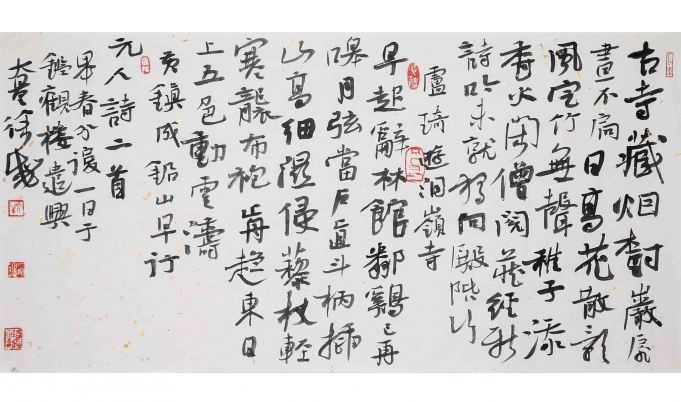 古寺藏烟樹巖扉
晝不扃日高花散影
風定竹無聲稚子添
香火閑僧閲藏經新
詩吟未就獨向殿階行
盧琦遊洞嶺寺
早起辭林館鄰鷄已再
嗥月弦當戶直斗柄插
山高細濕侵藜杖輕
寒襲布袍趨東日
上五色動雲濤
黃鎮成鉛山早行
元人詩二首
春分後一日于
鑑觀樓遣興
徐